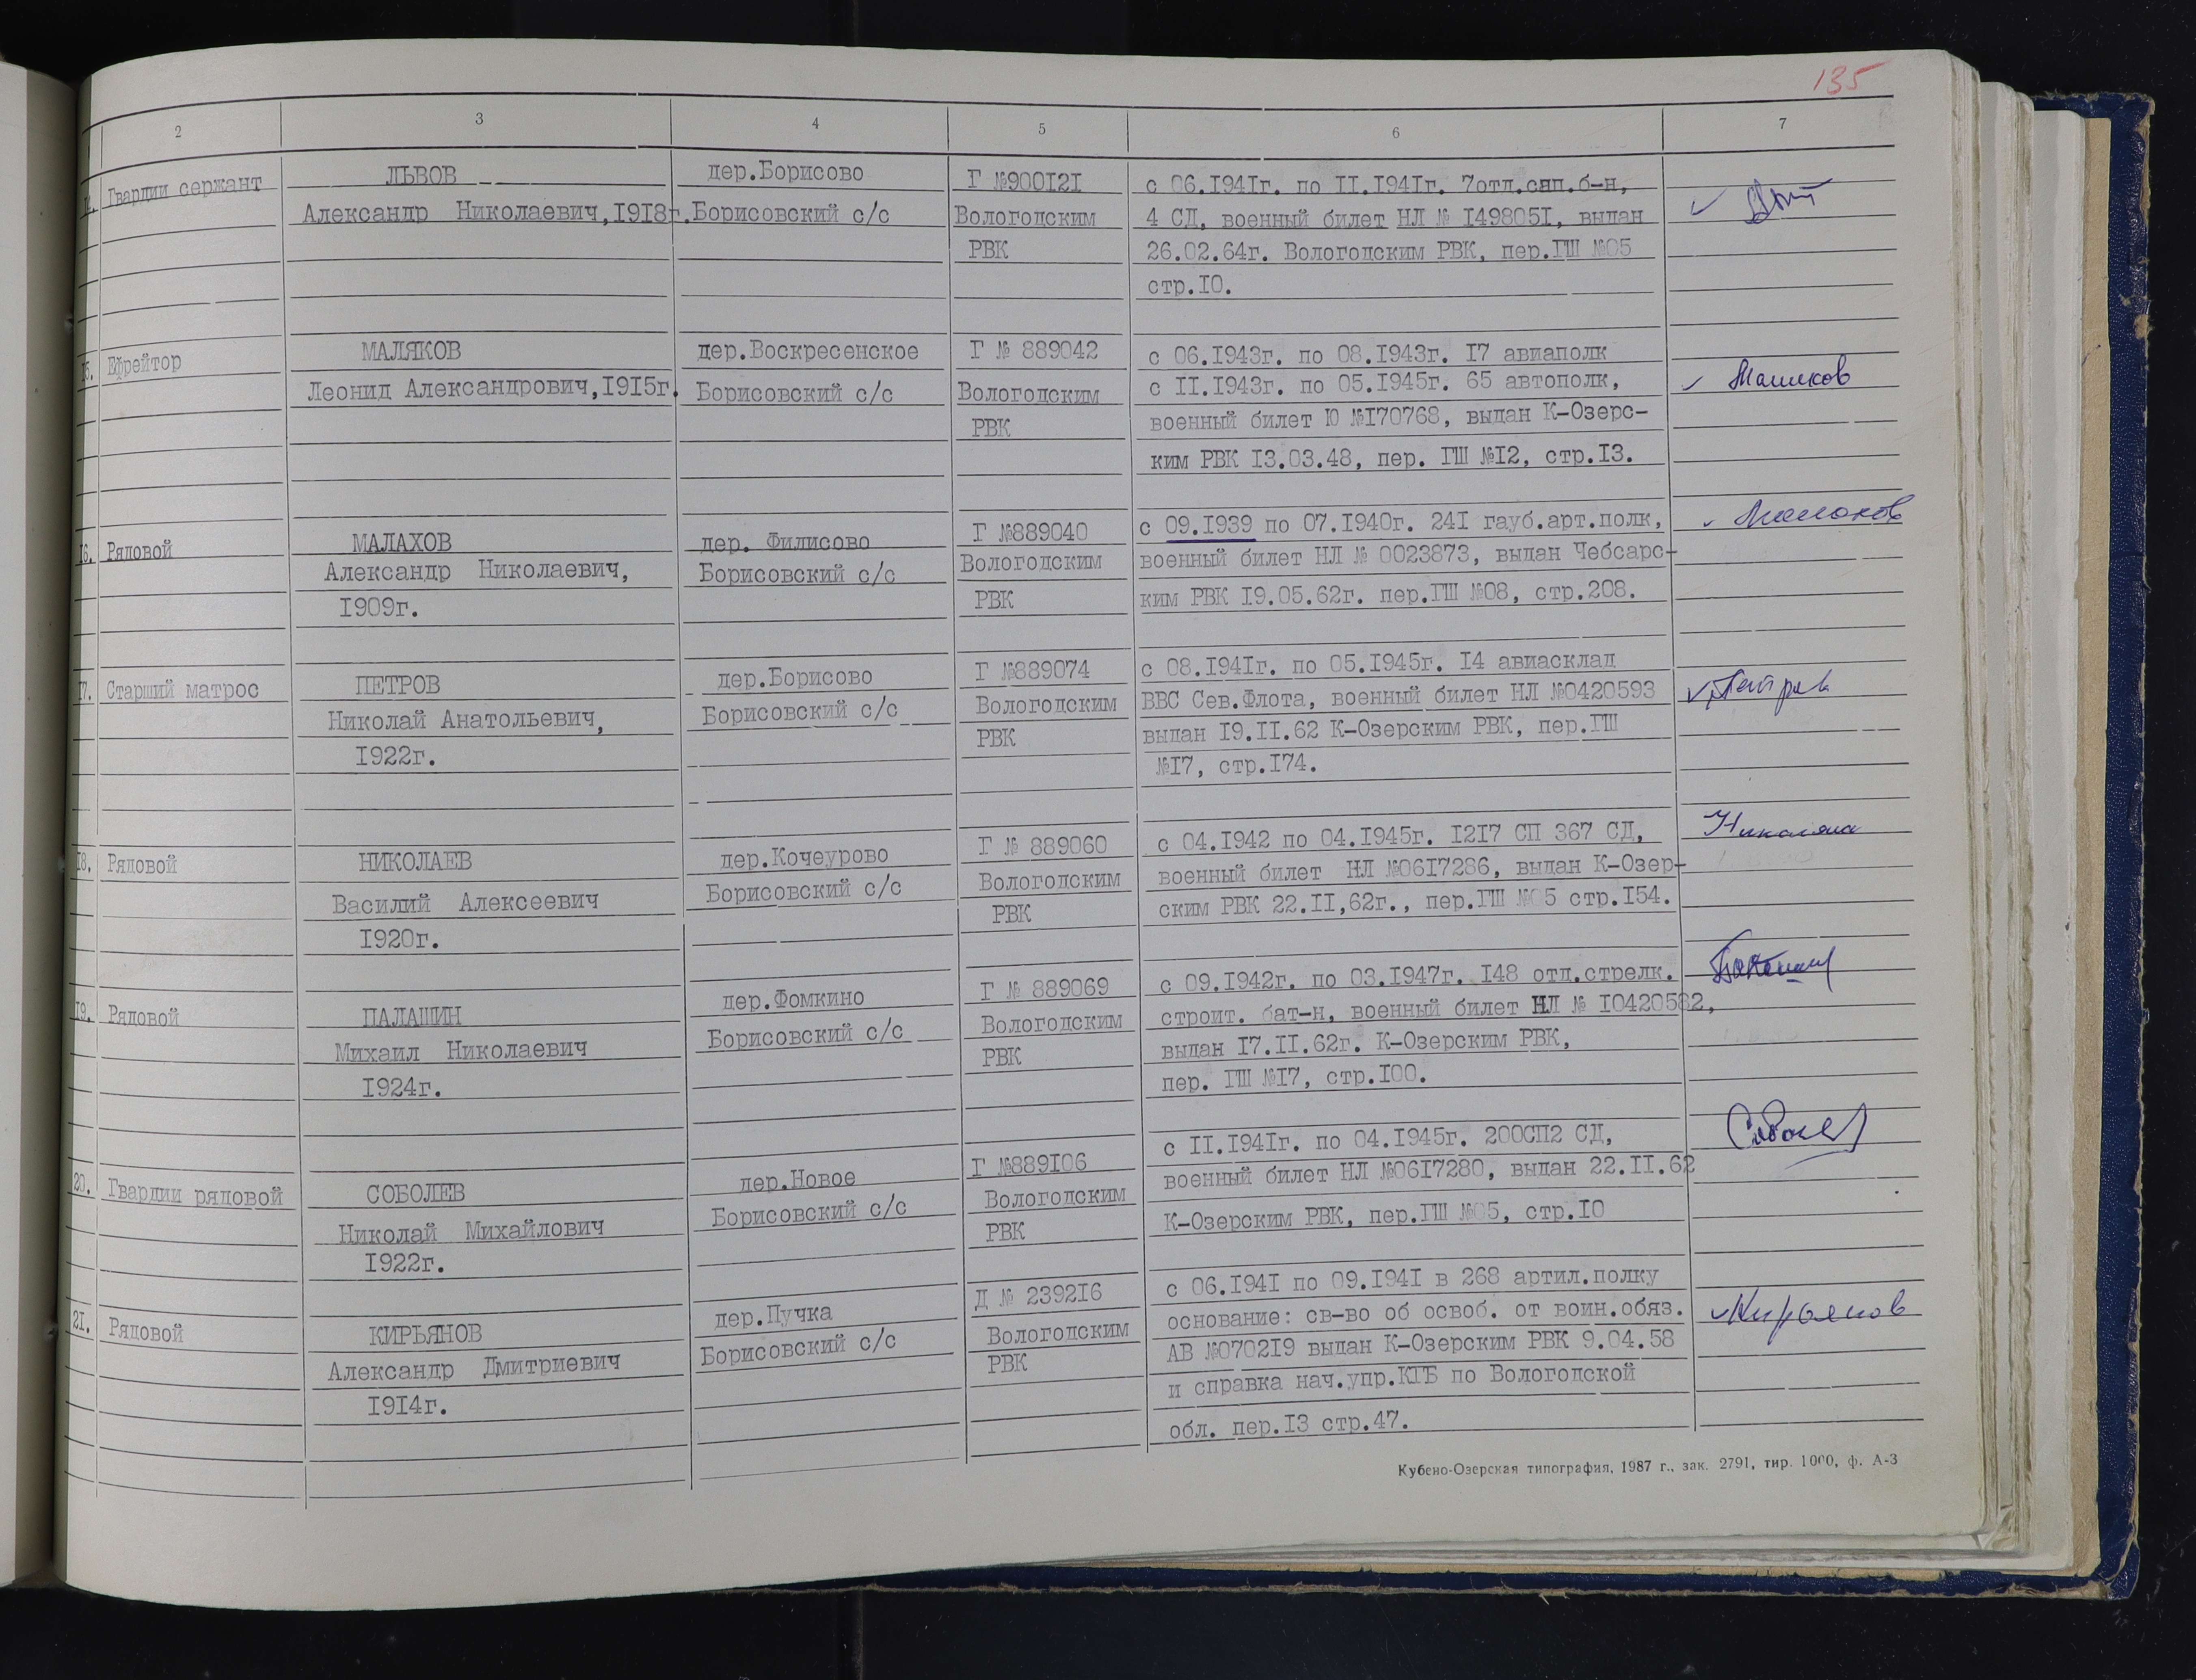 135
2 3 4 5 6 7
14. Гвардии сержант
ЛЬВОВ
Александр Николаевич, 1918г.
дер.Борисово
Борисовский с/с
Г №900121
Вологодским
РВК
с 06.1941г. по 11.1941г. 7отл.сап.б-н,
4 СД, военный билет НЛ № 1498051, выдан
26.02.64г. Вологодским РВК, пер.ГШ №05
стр.10.
15. Ефрейтор
МАЛЯКОВ
Леонид Александрович,1915г.
дер.Воскресенское
Борисовский с/с
Г № 889042
Вологодским
РВК
с 06.1943г. по 08.1943г. 17 авиаполк
с 11.1943г. по 05.1945г. 65 автополк,
военный билет Ю №170768, выдан К-Озерс-
ким РВК 13.03.48, пер. ГШ №12, стр.13.
16. Рядовой
МАЛАХОВ
Александр Николаевич,
1909г.
дер. Филисово
Борисовский с/с
Г №889040
Вологодским
РВК
с 09.1939 по 07.1940г. 241 гауб.арт.полк,
военный билет НЛ № 0023873, выдан Чебсарс-
ким РВК 19.05.62г. пер.ГШ №08, стр.208.
17. Старший матрос
ПЕТРОВ
Николай Анатольевич,
1922г.
дер.Борисово
Борисовский с/с
Г №889074
Вологодским
РВК
с 08.1941г. по 05.1945г. 14 авиасклад
ВВС Сев.Флота, военный билет НЛ №0420593
выдан 19.11.62 К-Озерским РВК, пер.ГШ
№17, стр.174.
18. Рядовой
НИКОЛАЕВ
Василий Алексеевич
1920г.
дер.Кочеурово
Борисовский с/с
Г № 889060
Вологодским
РВК
с 04.1942 по 04.1945г. 1217 СП 367 СД,
военный билет НЛ №0617286, выдан К-Озер-
ским РВК 22.11,62г., пер.ГШ №05 стр.154.
19. Рядовой
ПАЛАШИН
Михаил Николаевич
1924г.
дер.Фомкино
Борисовский с/с
Г № 889069
Вологодским
РВК
с 09.1942г. по 03.1947г. 148 отд.стрелк.
строит. бат-н, военный билет НЛ № 10420582,
выдан 17.11.62г. К-Озерским РВК,
пер. ГШ №17, стр.100.
20. Гвардии рядовой
СОБОЛЕВ
Николай Михайлович
1922г.
дер.Новое
Борисовский с/с
Г №889106
Вологодским
РВК
с 11.1941г. по 04.1945г. 200СП2 СД,
военный билет НЛ №0617280, выдан 22.11.62
К-Озерским РВК, пер.ГШ №05, стр.10
21. Рядовой
КИРЬЯНОВ
Александр Дмитриевич
1914г.
дер.Пучка
Борисовский с/с
Д № 239216
Вологодским
РВК
с 06.1941 по 09.1941 в 268 артил.полку
основание: св-во об освоб. от воин.обяз.
АВ №070219 выдан К-Озерским РВК 9.04.58
и справка нач.упр.КГБ по Вологодской
обл. пер.13 стр.47.
Кирьянов
Кубено-Озерская типография, 1987 г., зак. 2791, тир. 1000, ф. А-3